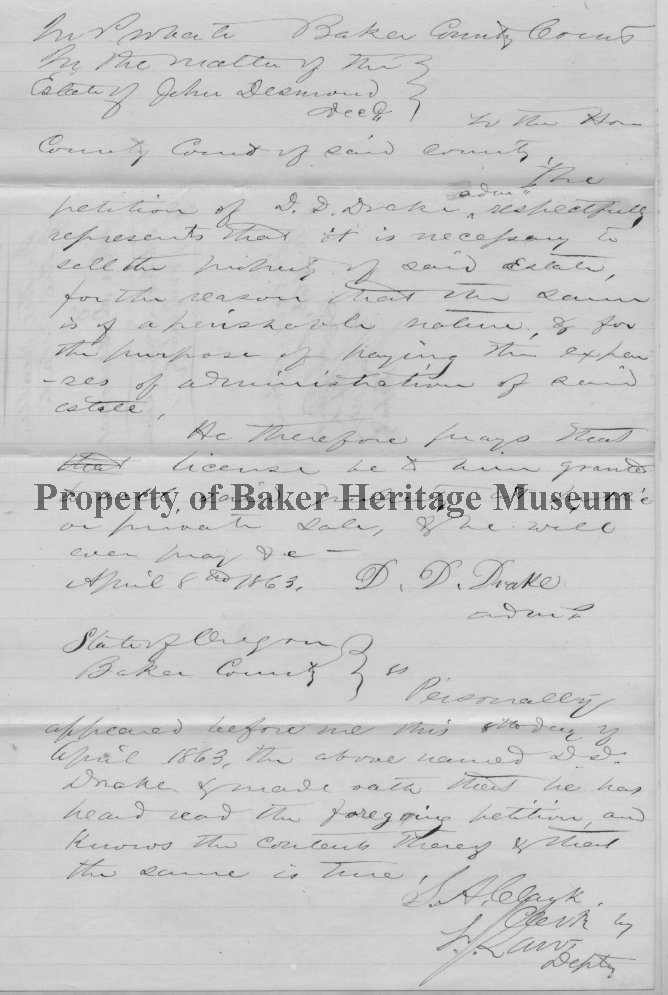 In Probate Baker County Court
In the matter of the }
Estate of John Desmond }
Dec'd }
To the Hon
County Court of said county,
The
petition of D. D. Drake adm'r respectfully
represents that it is necessary to
sell the property of said Estate,
for the reason that the same
is of a perishable nature, & for
the purpose of paying the expen
-ses of administration of said
estate,
He therefore prays that
that license be to him granted
Property of Baker Heritage Museum
or private sale, & he will
ever pray &c —
April 8th 1863. D. D. Drake
adm'r
State of Oregon }
Baker County } ss
Personally
appeared before me this 8th day of
April 1863, the above named D. D.
Drake & made oath that he has
heard read the foregoing petition, and
knows the contents thereof & that
the same is true,
S. A. Clark,
Clerk by
Depty